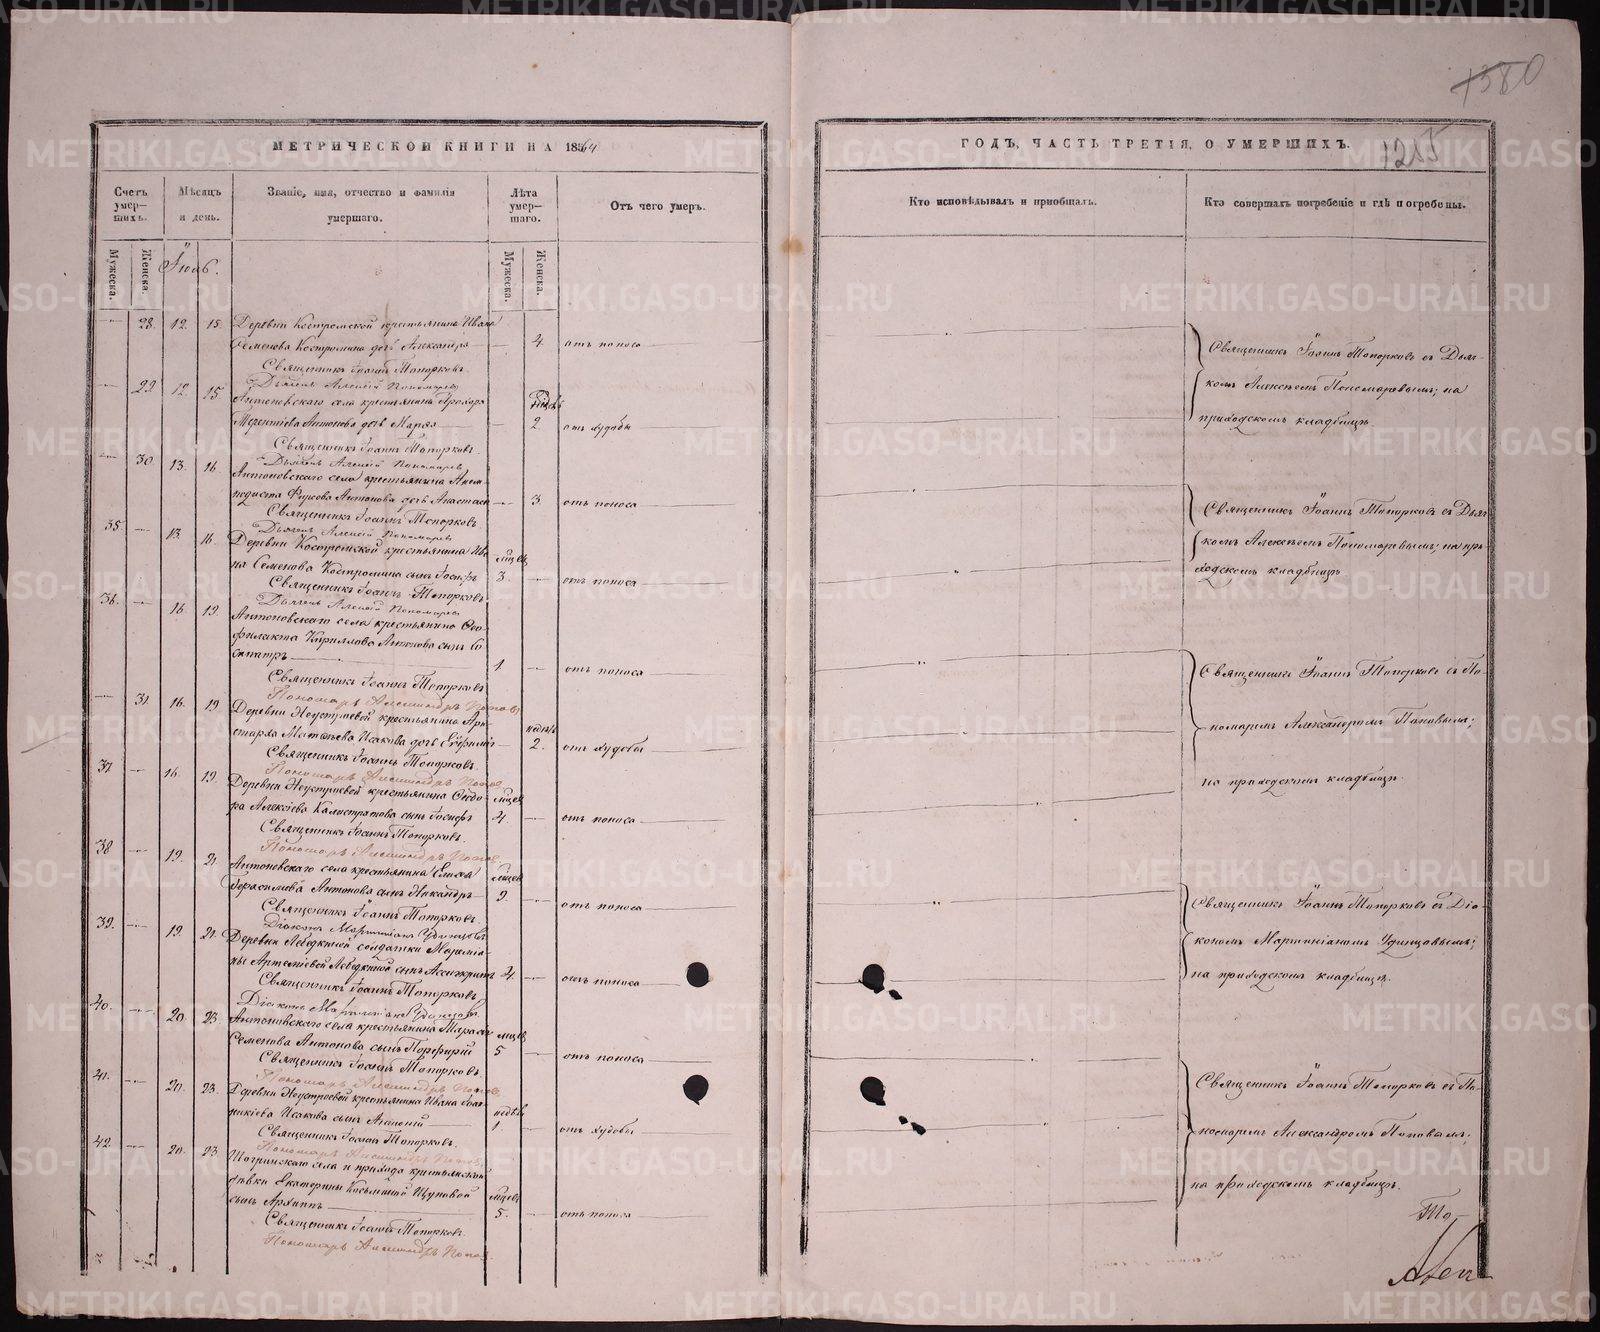 1380
МЕТРИЧЕСКОЙ КНИГИ НА 1864
ГОДЪ, ЧАСТЬ ТРЕТІЯ, О УМЕРШИХЪ.
1215
Счетъ умер-шихъ.
Мужеска.
Женска.
Мѣсяцъ и день.
Званіе, имя, отчество и фамилія умершаго.
Лѣта умер-шаго.
Мужеска.
Женска.
Отъ чего умеръ.
Кто исповѣдывалъ и пріобщалъ.
Кто совершалъ погребеніе и гдѣ погребены.
Іюль.
28. 12. 15. Деревни Костромской крестьянина Ивана
Семенова Костромина дочь Александра — 4 отъ поноса
Священникъ Іоаннъ Топорковъ.
Дьячекъ Алексій Пономаревъ
29 12. 15. Антоновскаго села крестьянина Прохора
Терентіева Антонова дочь Марѳа — 2 отъ худобы
Священникъ Іоаннъ Топорковъ.
Дьячекъ Алексій Пономаревъ
30. 13. 16. Антоновскаго села крестьянина
Антонова дочь Анастасія — 3 отъ поноса
Священникъ Іоаннъ Топорковъ
Дьячекъ Алексій Пономаревъ
35. — 13. 16. Деревни Костромской крестьянина Ива-
на Семенова Костромина сынъ Іосифъ 3. — отъ поноса
Священникъ Іоаннъ Топорковъ.
Дьячекъ Алексій Пономаревъ
36. — 16. 19. Антоновскаго села крестьянина Ѳео-
филакта Кириллова Антонова сынъ Со-
сипатръ 1 — отъ поноса
Священникъ Іоаннъ Топорковъ
Пономарь Александръ Поповъ
31. 16. 19. Деревни Неустроевой крестьянина Ари-
старха Матѳѣева Исакова дочь Евфимія — недѣль 2. отъ худобы
Священникъ Іоаннъ Топорковъ.
Пономарь Александръ Поповъ
37. — 16. 19. Деревни Неустроевой крестьянина Ѳедо-
ра Алексіева Калистратова сынъ Іосифъ 4. — отъ поноса
Священникъ Іоаннъ Топорковъ.
Пономарь Александръ Поповъ
38. — 19. 21. Антоновскаго села крестьянина Елисея
Герасимова Антонова сынъ Никандръ 9 — отъ поноса
Священникъ Іоаннъ Топорковъ.
Діаконъ Мартиніанъ Удинцовъ
39. — 19. 21. Деревни Лебедкиной солдатки Маремія-
ны Артеміевой Лебедкиной сынъ Ассигкритъ 4. — отъ поноса
Священникъ Іоаннъ Топорковъ
Діаконъ Мартиніанъ Удинцовъ.
40. — 20. 23. Антоновскаго села крестьянина Тарасія
Семенова Антонова сынъ Порфирій 5 — отъ поноса
Священникъ Іоаннъ Топорковъ.
Пономарь Александръ Поповъ
41. — 20. 23. Деревни Неустроевой крестьянина Ивана Іоан-
никіева Исакова сынъ Аполоній недѣль 1 — отъ худобы
Священникъ Іоаннъ Топорковъ.
Пономарь Александръ Поповъ
42. — 20. 23. Шогринскаго села и прихода крестьянской
дѣвки Екатерины Косьминой Щуповой
сынъ Архиппъ 5. — отъ поноса
Священникъ Іоаннъ Топорковъ.
Пономарь Александръ Поповъ
Священникъ Іоаннъ Топорковъ съ Дьяч-
комъ Алексѣемъ Пономаревымъ; на
приходскомъ кладбищѣ.
Священникъ Іоаннъ Топорковъ съ Дьяч-
комъ Алексѣемъ Пономаревымъ; на при-
ходскомъ кладбищѣ
Священникъ Іоаннъ Топорковъ съ По-
номаремъ Александромъ Поповымъ;
на приходскомъ кладбищѣ.
Священникъ Іоаннъ Топорковъ съ Діа-
кономъ Мартиніаномъ Удинцовымъ;
на приходскомъ кладбищѣ.
Священникъ Іоаннъ Топорковъ съ По-
номаремъ Александромъ Поповымъ;
на приходскомъ кладбищѣ.
То-
METRIKI.GASO-URAL.RU